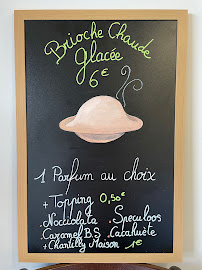 Brioche Chaude
glacée
6€
1 Parfum au choix
+ Topping 0,50€
.Nocciolata .Speculoos
.Caramel B.S .Cacahuète
+Chantilly Maison 1€